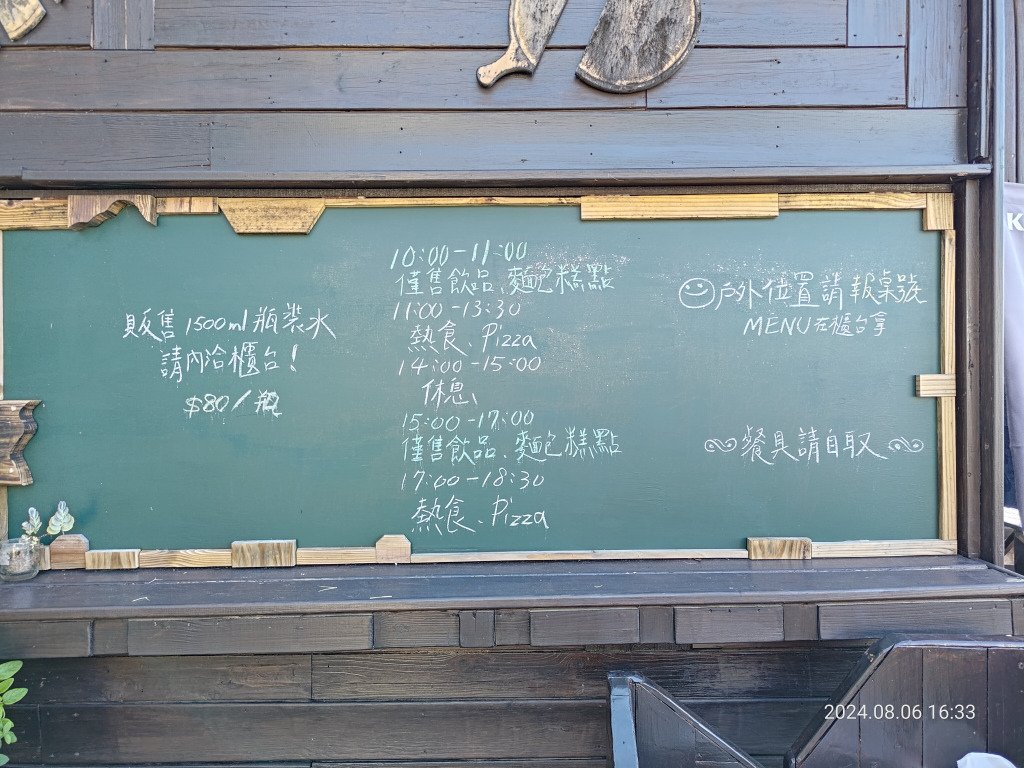 販售1500ml瓶裝水
請內洽櫃台!
$80/瓶
10:00-11:00
僅售飲品、麵包糕點
11:00-13:30
熱食、Pizza
14:00-15:00
休息
15:00-17:00
僅售飲品、麵包糕點
17:00-18:30
熱食、Pizza
戶外位置請報桌號
MENU在櫃台拿
餐具請自取
K
2024.08.06 16:33